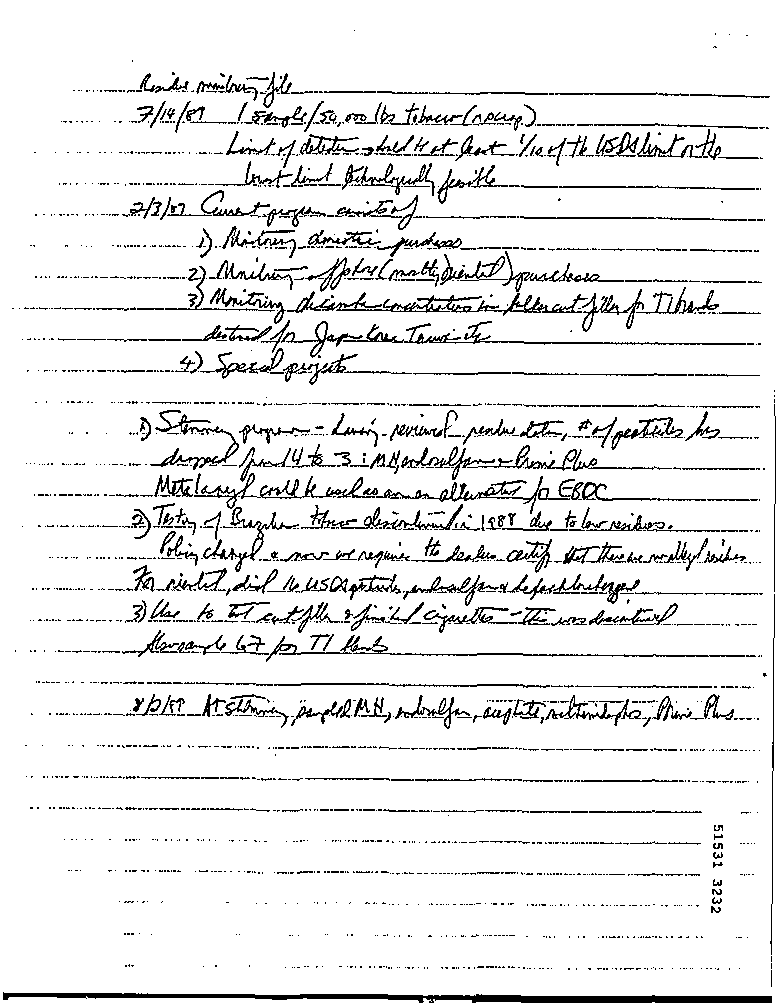 Residue monitoring file
7/14/87 1 sample/50,000 lbs tobacco
Limit of detection should be at least 1/10 of the USDA limit or the
lowest limit technologically feasible
2/3/87 Current program consists of
1) Monitoring domestic purchases
2) Monitoring offshore (mostly oriental) purchases
3) Monitoring concentrations in cut filler for TI brands
destined for Japan Korea Taiwan etc
4) Special projects
1) Stemming program - having reviewed residue data, # of pesticides has
dropped from 14 to 3: MH, endosulfan & Prime Plus
Metalaxyl could be used as an alternative for EBDC
2) Testing of discontinued in 1988 due to low residues.
Policy changed & now we require the dealers certify that there are residues
For oriental, did 16 USDA pesticides, endosulfan &
3) Use to test cut filler & finished cigarettes - this was discontinued
Also sample for TI
At stemming, sampled MH, endosulfan, acephate, methamidophos, Prime Plus
51531 3232